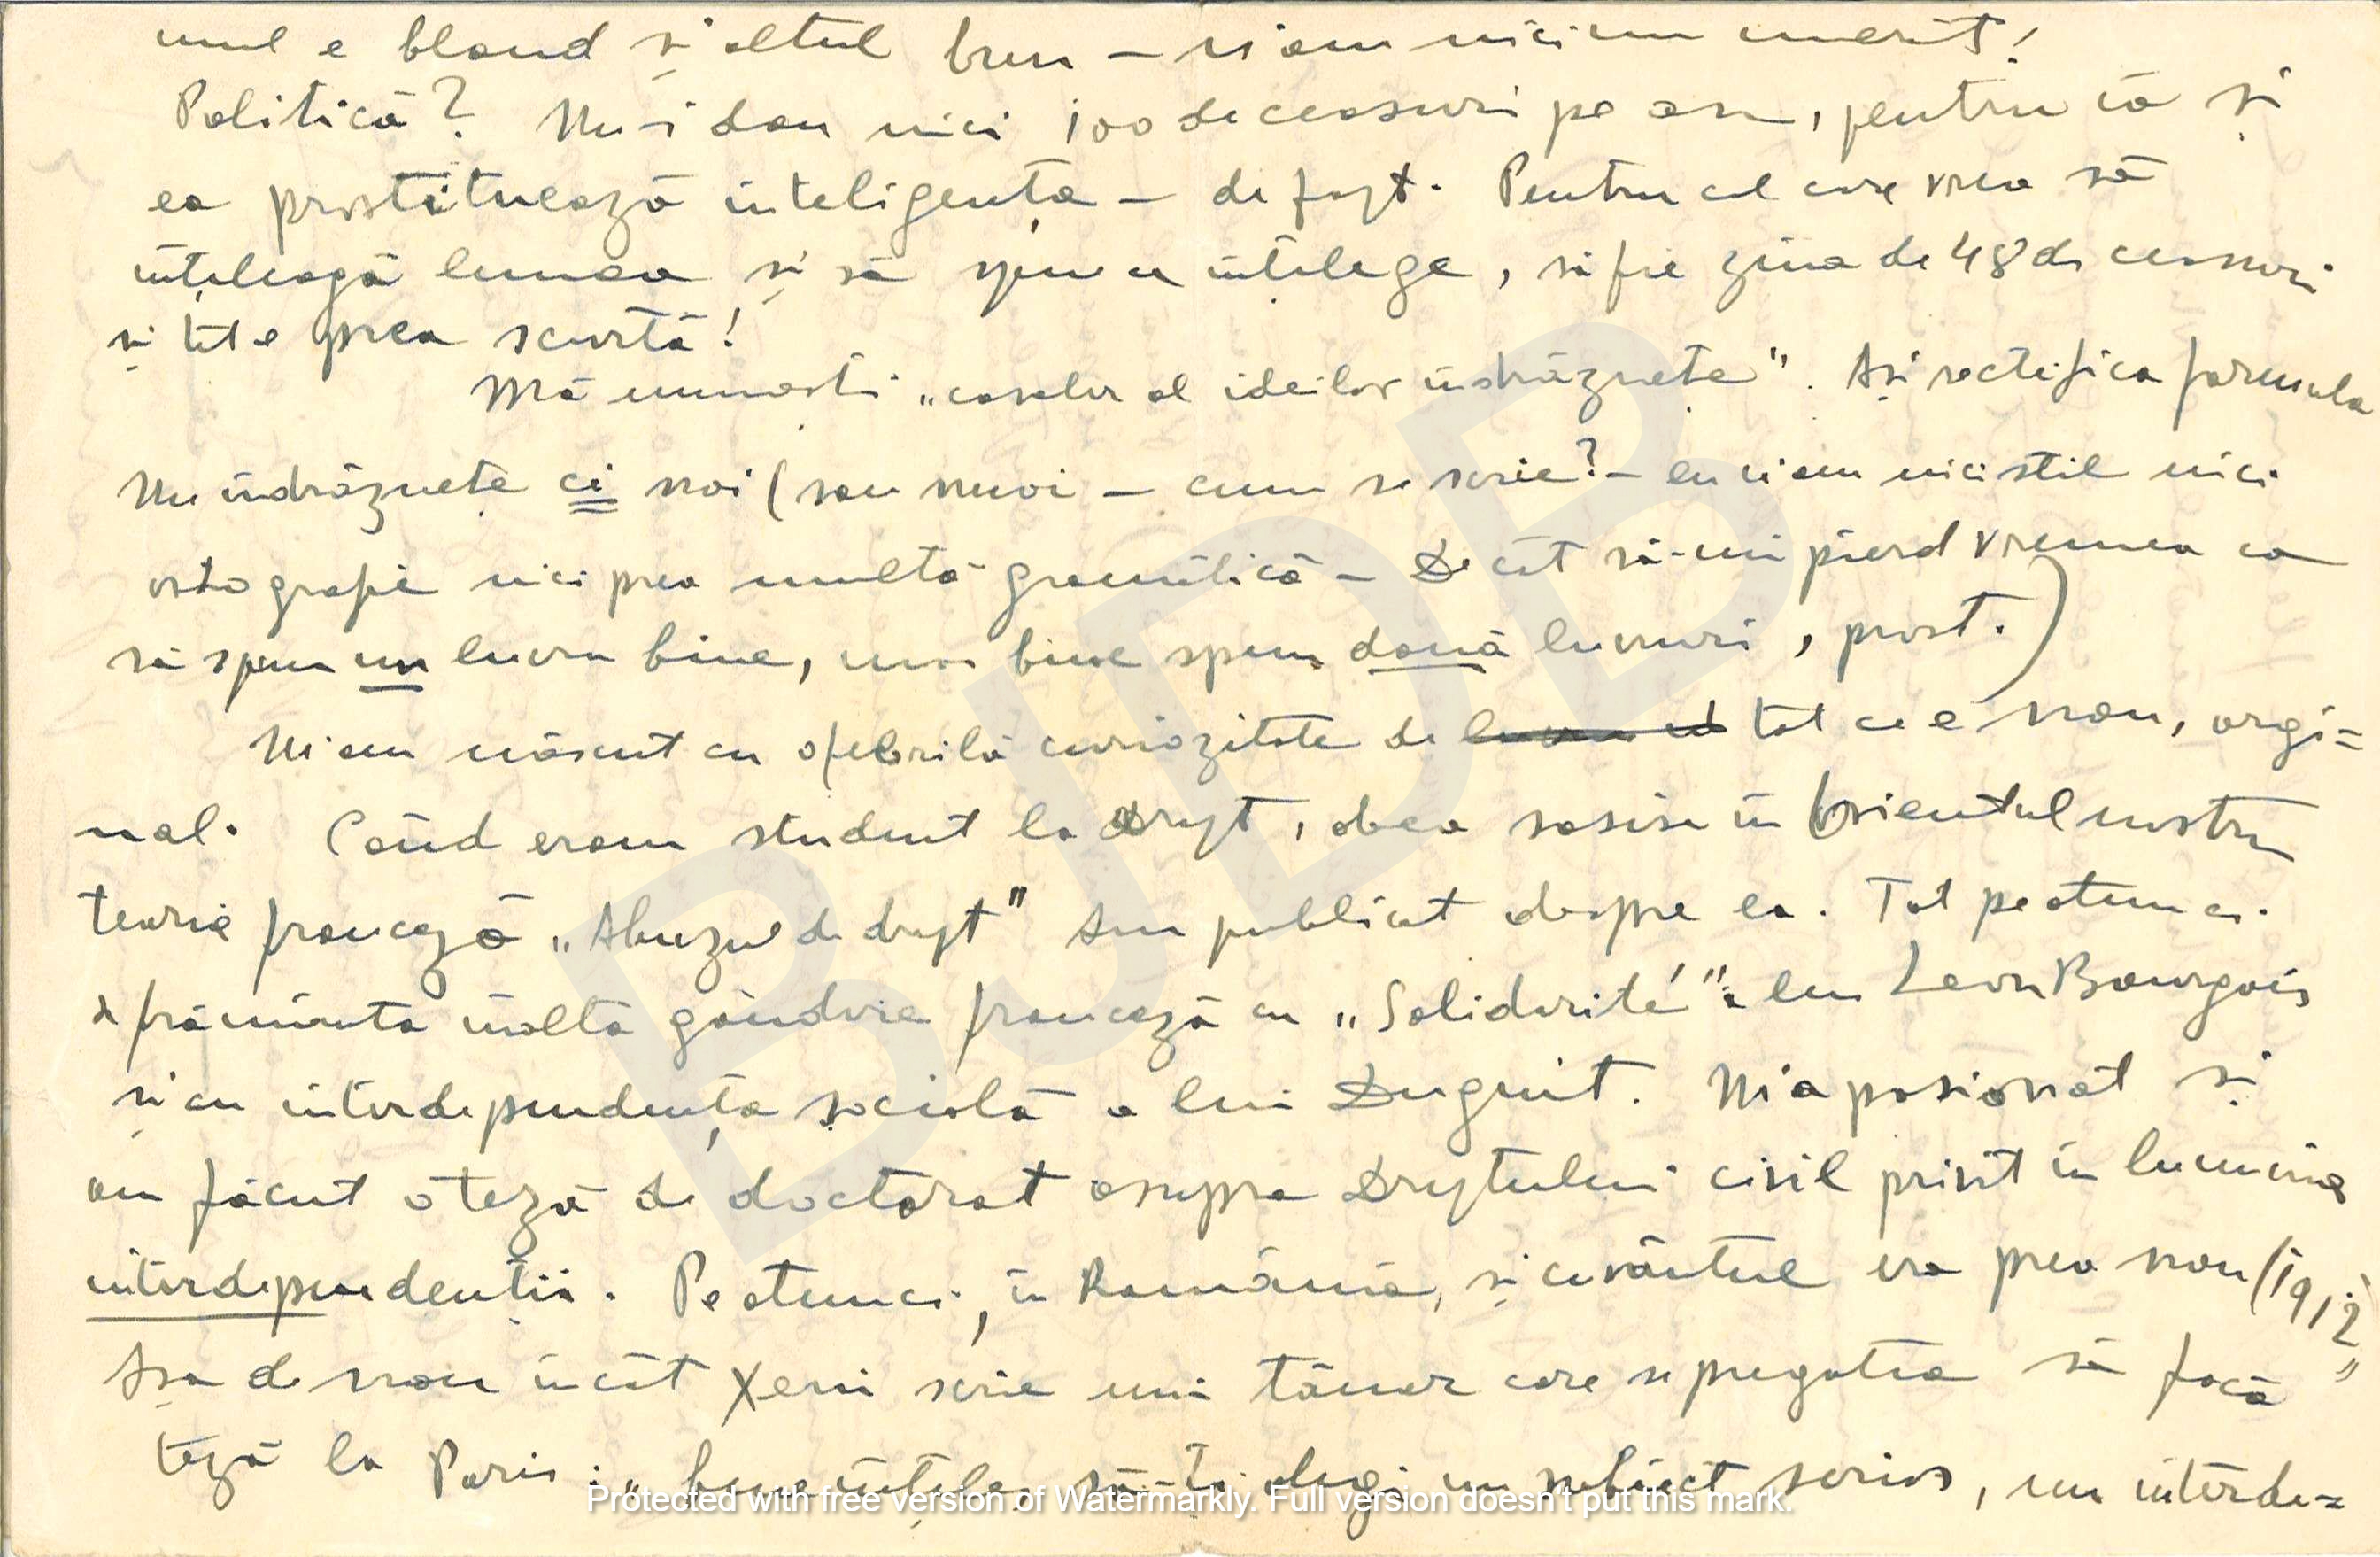 unul e blond și altul brun – n'am nici un merit!
Politică? Nu-i dau nici 100 de ceasuri pe an, pentru că și
ea prostituează inteligența – de fapt. Pentru cel care vrea să
înțeleagă lumea și să spue ce înțelege, să fie ziua de 48 de ceasuri
și tot e prea scurtă!
Mă numești „cavaler al ideilor îndrăznețe". Ași rectifica formula
Nu îndrăznețe ci noi (sau nuoi – cum se scrie? – eu n'am nici stil nici
ortografie nici prea multă gramatică – Decât să-mi pierd vremea ca
să spun un lucru bine, mai bine spun două lucruri, prost.)
M'am născut cu o febrilă curiozitate de tot ce e nou, origi=
nal. Când eram student la drept, abea sosise în Orientul nostru
teoria franceză „Abuzul de drept" Am publicat despre ea. Tot pe atunci
se frământa multă gândire franceză cu „Solidarité" a lui Leon Bourgois
și cu interdependența socială a lui Duguit. M'a pasionat și
am făcut o teză de doctorat asupra Dreptului civil privit în lumina
interdependenții. Pe atunci, în România, și cuvântul era prea nou (1912)
Așa de nou încât Xeni scrie unui tânăr care se pregătea să facă
teză la Paris: „bine înțeles să-ți alegi un subiect serios, nu interde=
Protected with free version of Watermarkly. Full version doesn't put this mark.
BJDB